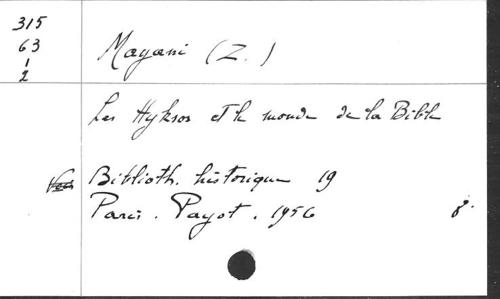 315
63
1
2
Mayani (Z.)
Les Hyksos et le monde de la Bible
Biblioth. historique 19
Paris. Payot. 1956 8°